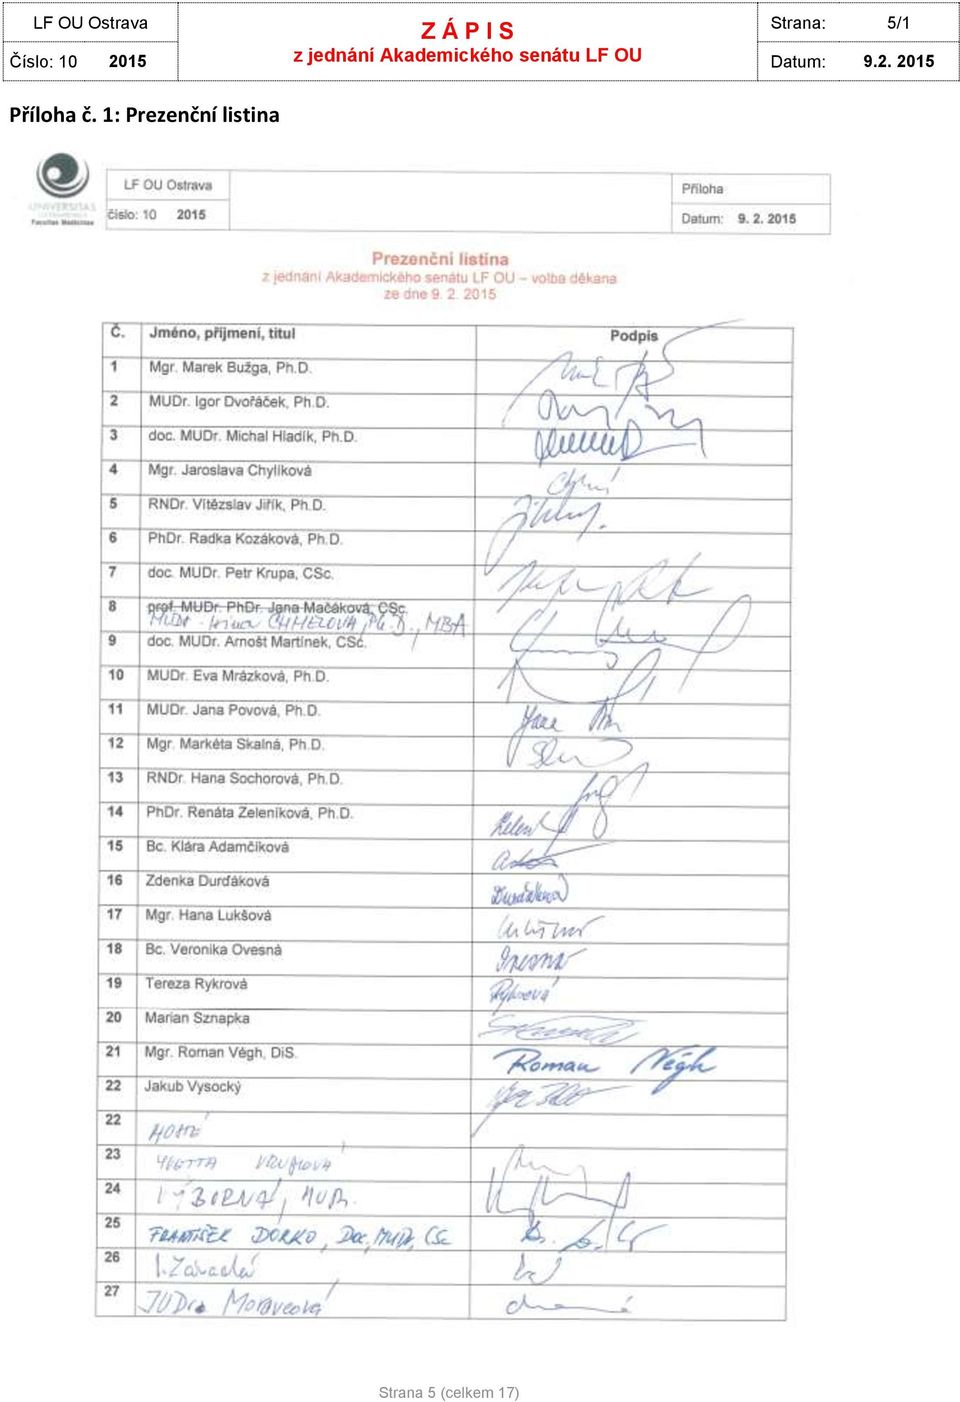 LF OU Ostrava
Z Á P I S
Strana: 5/1
Číslo: 10 2015
z jednání Akademického senátu LF OU
Datum: 9.2. 2015
Příloha č. 1: Prezenční listina
LF OU Ostrava
Příloha
UNIVERSITAS
Facultas Medicinae
číslo: 10 2015
Datum: 9. 2. 2015
Prezenční listina
z jednání Akademického senátu LF OU – volba děkana
ze dne 9. 2. 2015
Č. Jméno, příjmení, titul Podpis
1 Mgr. Marek Bužga, Ph.D.
2 MUDr. Igor Dvořáček, Ph.D.
3 doc. MUDr. Michal Hladík, Ph.D.
4 Mgr. Jaroslava Chylíková
5 RNDr. Vítězslav Jiřík, Ph.D.
6 PhDr. Radka Kozáková, Ph.D.
7 doc. MUDr. Petr Krupa, CSc.
8 prof. MUDr. PhDr. Jana Mačáková, CSc.
MUDr. Irina CHMELOVÁ, Ph.D., MBA
9 doc. MUDr. Arnošt Martínek, CSc.
10 MUDr. Eva Mrázková, Ph.D.
11 MUDr. Jana Povová, Ph.D.
12 Mgr. Markéta Skalná, Ph.D.
13 RNDr. Hana Sochorová, Ph.D.
14 PhDr. Renáta Zeleníková, Ph.D.
15 Bc. Klára Adamčíková
16 Zdenka Durďáková Durďáková
17 Mgr. Hana Lukšová
18 Bc. Veronika Ovesná Ovesná
19 Tereza Rykrová Rykrová
20 Marian Sznapka
21 Mgr. Roman Végh, DiS. Roman Végh
22 Jakub Vysocký
22 HOSTÉ
23 YVETTA VRUBLOVÁ
24 VÝBORNÁ, MUDr.
25 FRANTIŠEK DORKO, Doc. MUDr. CSc
26
27 JUDr. Moravcová
Strana 5 (celkem 17)